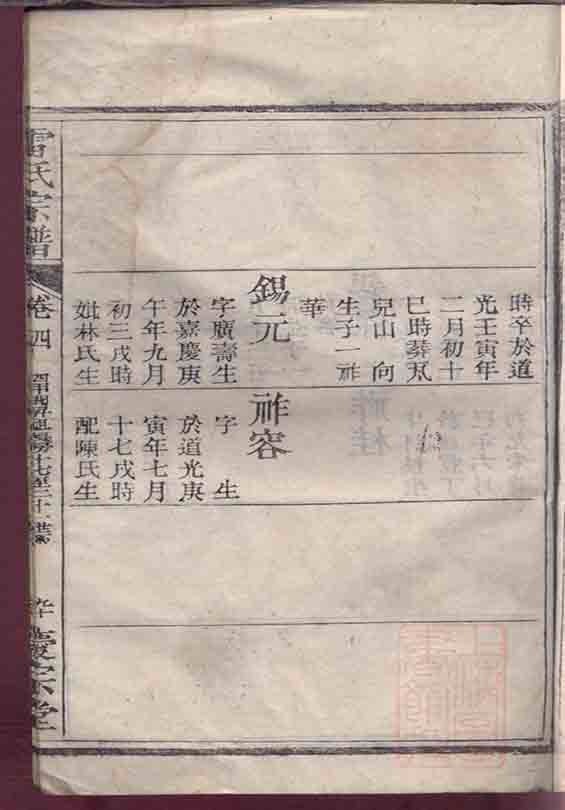 時卒於道
光壬寅年
二月初十
巳時葬茿
兒山　向
生子一祚
華
錫元
字廣壽生
於嘉慶庚
午年九月
初三戌時
妣林氏生
祚容
字　生
於道光庚
寅年七月
十七戌時
配陳氏生
雷氏宗譜
卷四
慶宗堂